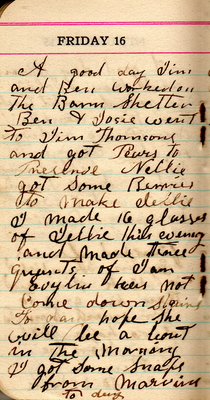 FRIDAY 16
A good day Jim
and Ben worked on
the Barn Shelter
Ben & Josie went
to Jim Thomsons
and got Pears to
Preserve Nellie
got some Berries
to make Jellie
I made 16 glasses
of Jellie this eveng
and made three
quarts of Jam
has not
Come down Stairs
To day hope she
will be a bout
in the Morning
I got some Snaps
from Marvins
to day